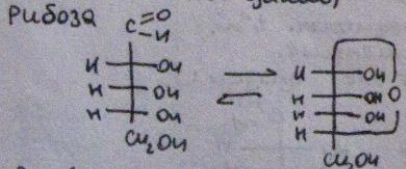 Рибоза
C=O
H
H OH
H OH
H OH
CH₂OH
H OH
H OH O
H OH
H
CH₂OH